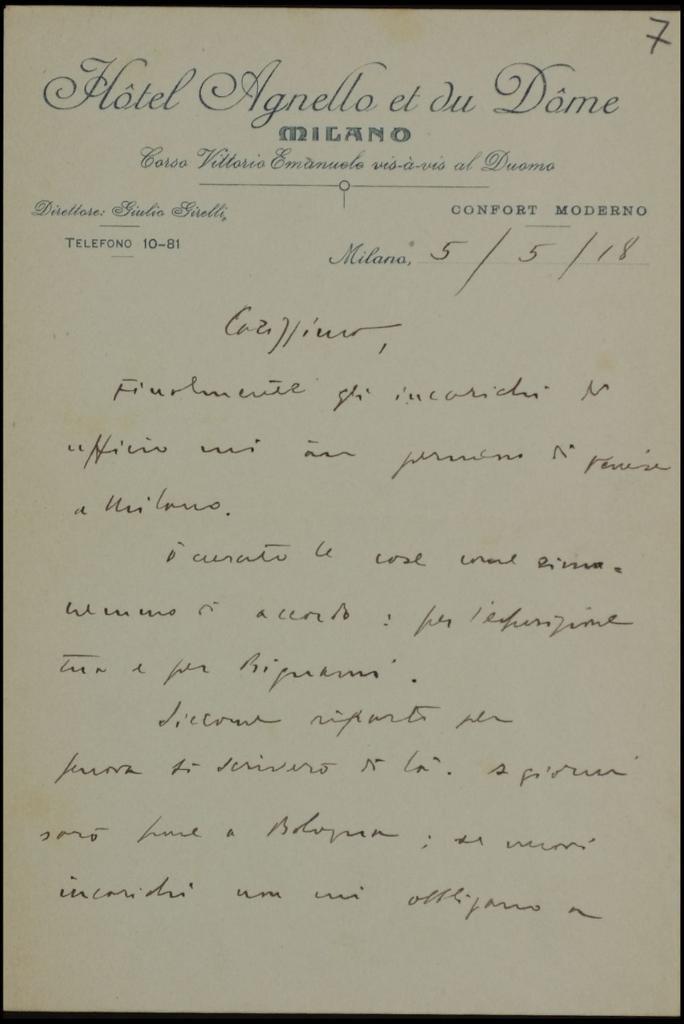 7
Hôtel Agnello et du Dôme
MILANO
Corso Vittorio Emanuele vis-à-vis al Duomo
Direttore: Giulio Girelli,
CONFORT MODERNO
TELEFONO 10-81
Milano, 5/5/18
Carissimo,
Finalmente gli incarichi di
ufficio mi àn permesso di venire
a Milano.
Ò curato le cose come rima=
nemmo di accordo: per l'esposizione
tua e per Bignami.
Siccome riparto per
Genova ti scriverò di là. A giorni
sarò pure a Bologna; se nuovi
incarichi non mi obbligano a